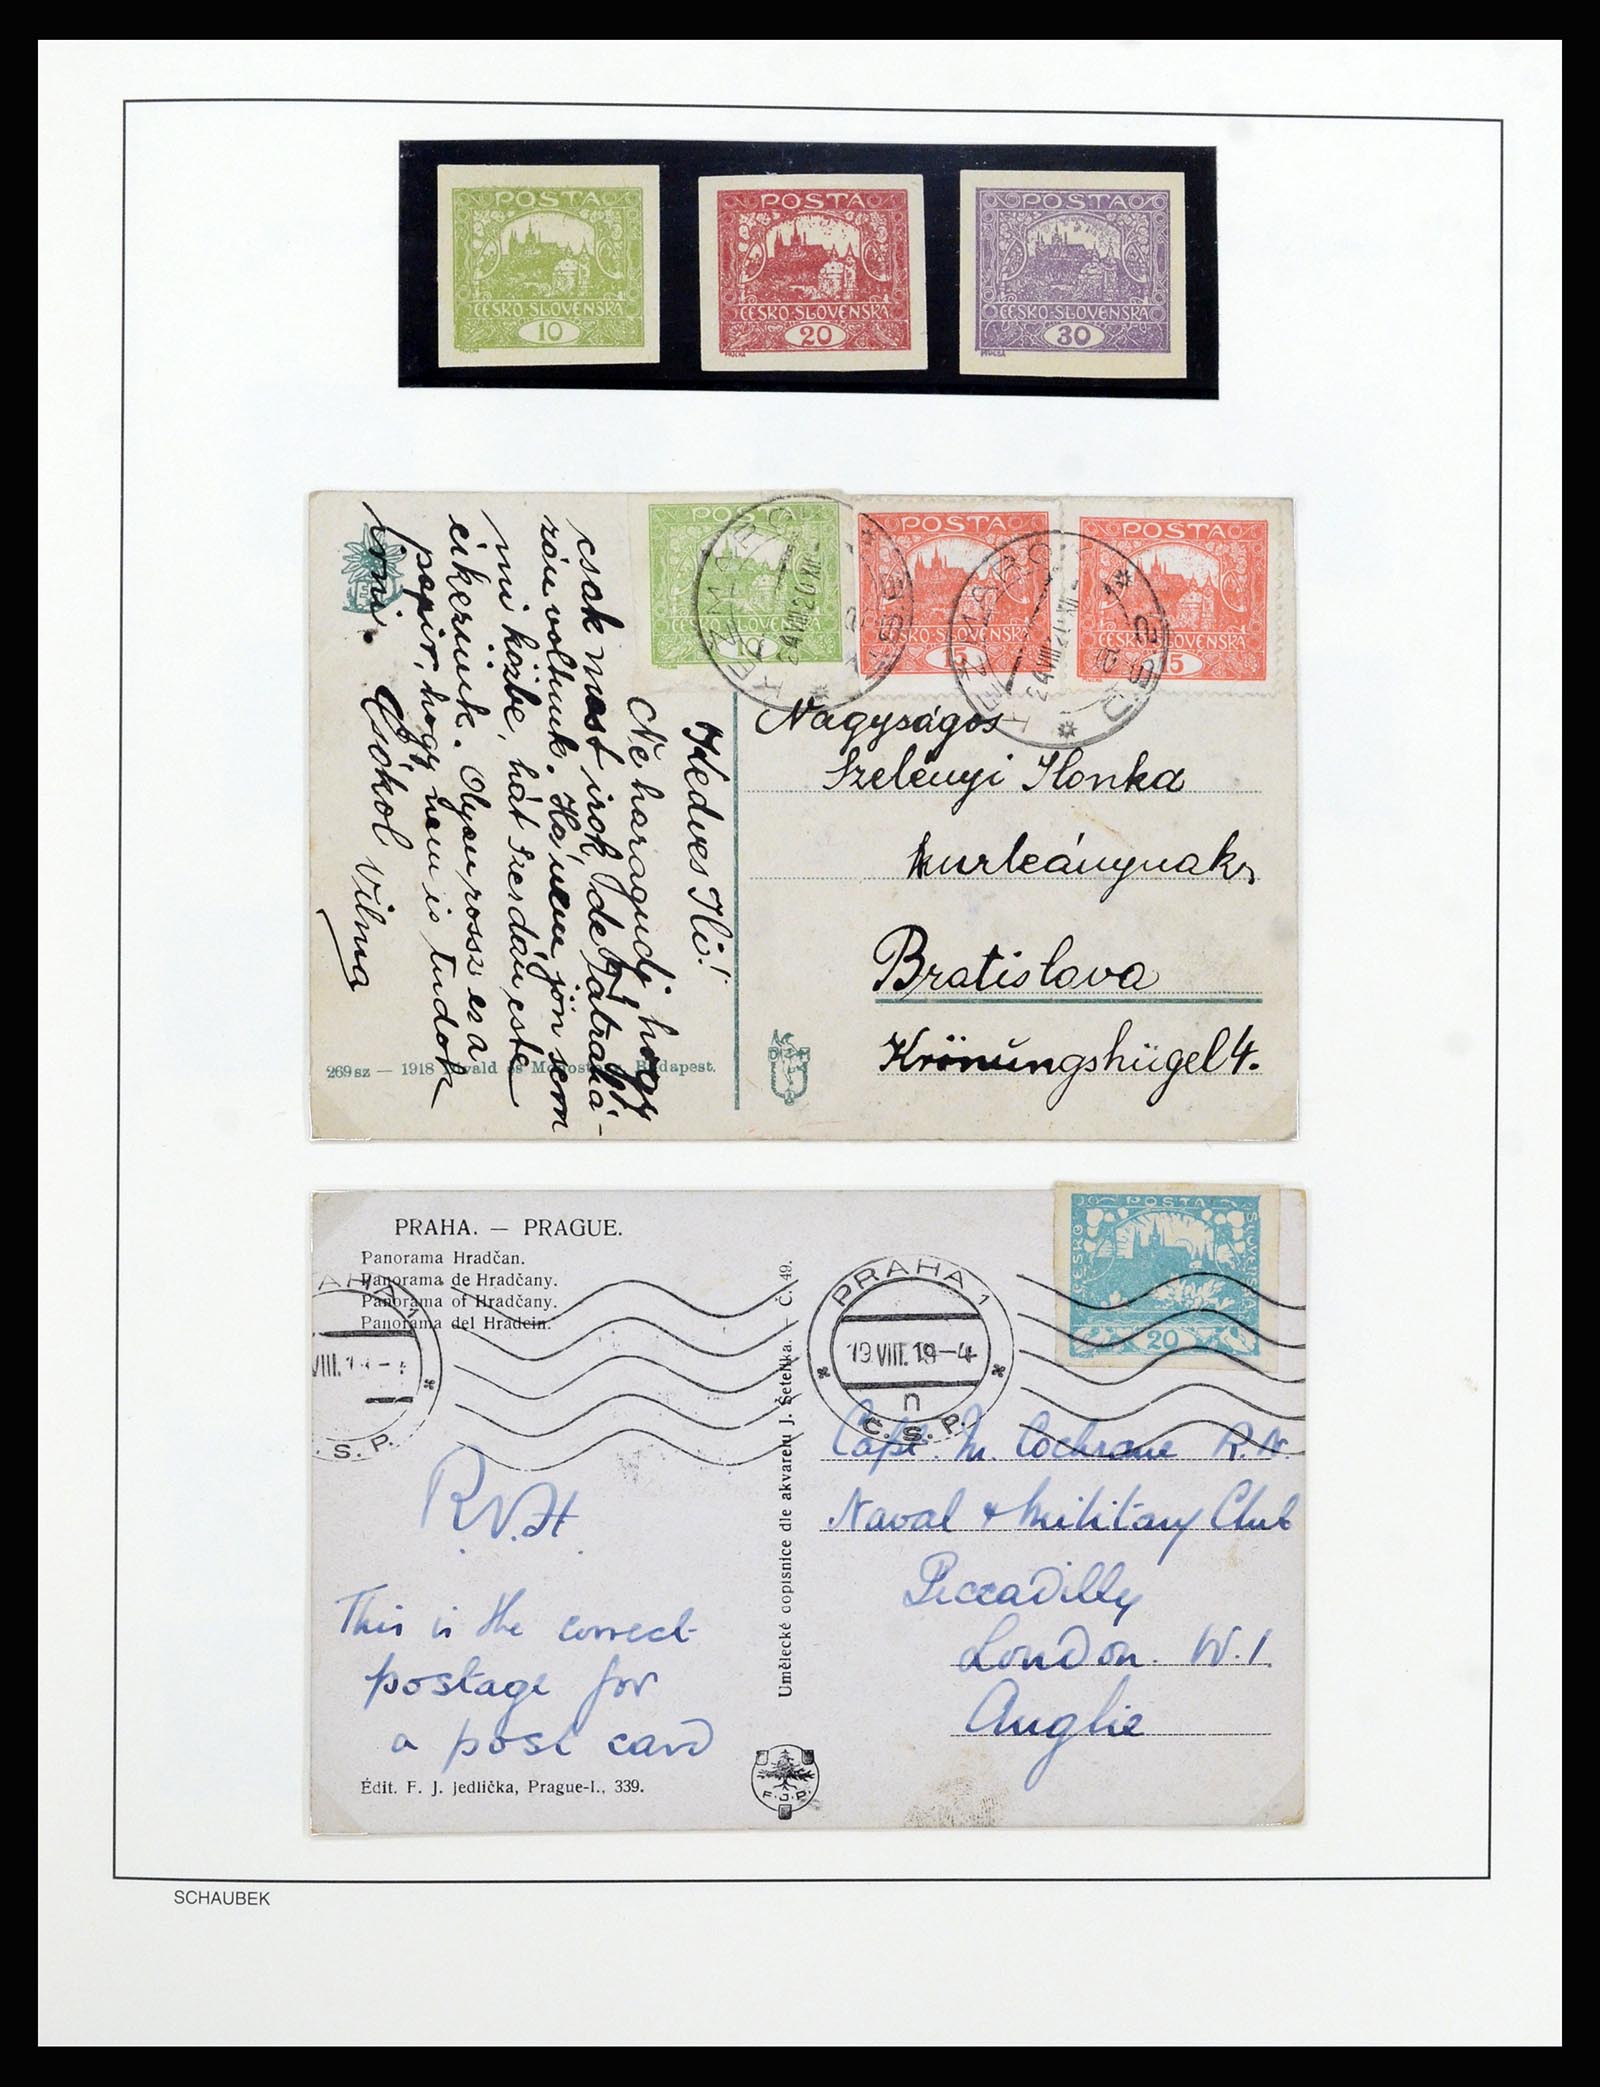 POSTA
ČESKO-SLOVENSKÁ
10
MUCHA
POSTA
ČESKO-SLOVENSKÁ
20
MUCHA
POSTA
ČESKO-SLOVENSKÁ
30
MUCHA
POSTA
POSTA
ČESKO-SLOVENSKÁ
15
ČESKO-SLOVENSKÁ
15
10
KEZMAROK
Kedves Ili!
Ne haragudj hogy
csak most irok, de Tátrahá-
zán voltunk. Ha nem jön sem
mi közbe, hát szerdán este
érkezünk. Olyan rossz ez a
papir, hogy nem is tudok
irni. Csókol Vilma
Nagyságos
Szelényi Ilonka
urleánynak
Bratislava
Krönungshügel 4.
269 sz — 1918 Budapest.
PRAHA. — PRAGUE.
Panorama Hradčan.
Panorama de Hradčany.
Panorama of Hradčany.
Panorama del Hradcin.
PRAHA 1
19.VIII.19-4
n
Č.S.P.
POSTA
ČESKO
SLOVENSKÁ
20
Umělecké dopisnice dle akvarelu J. Šetelíka. — Č. 49.
R.V.H.
This is the correct
postage for
a post card
Capt. M. Cochrane R.N.
Naval & Military Club
Piccadilly
London. W.1.
Anglie
Édit. F. J. Jedlička, Prague-I., 339.
F.J.P.
SCHAUBEK